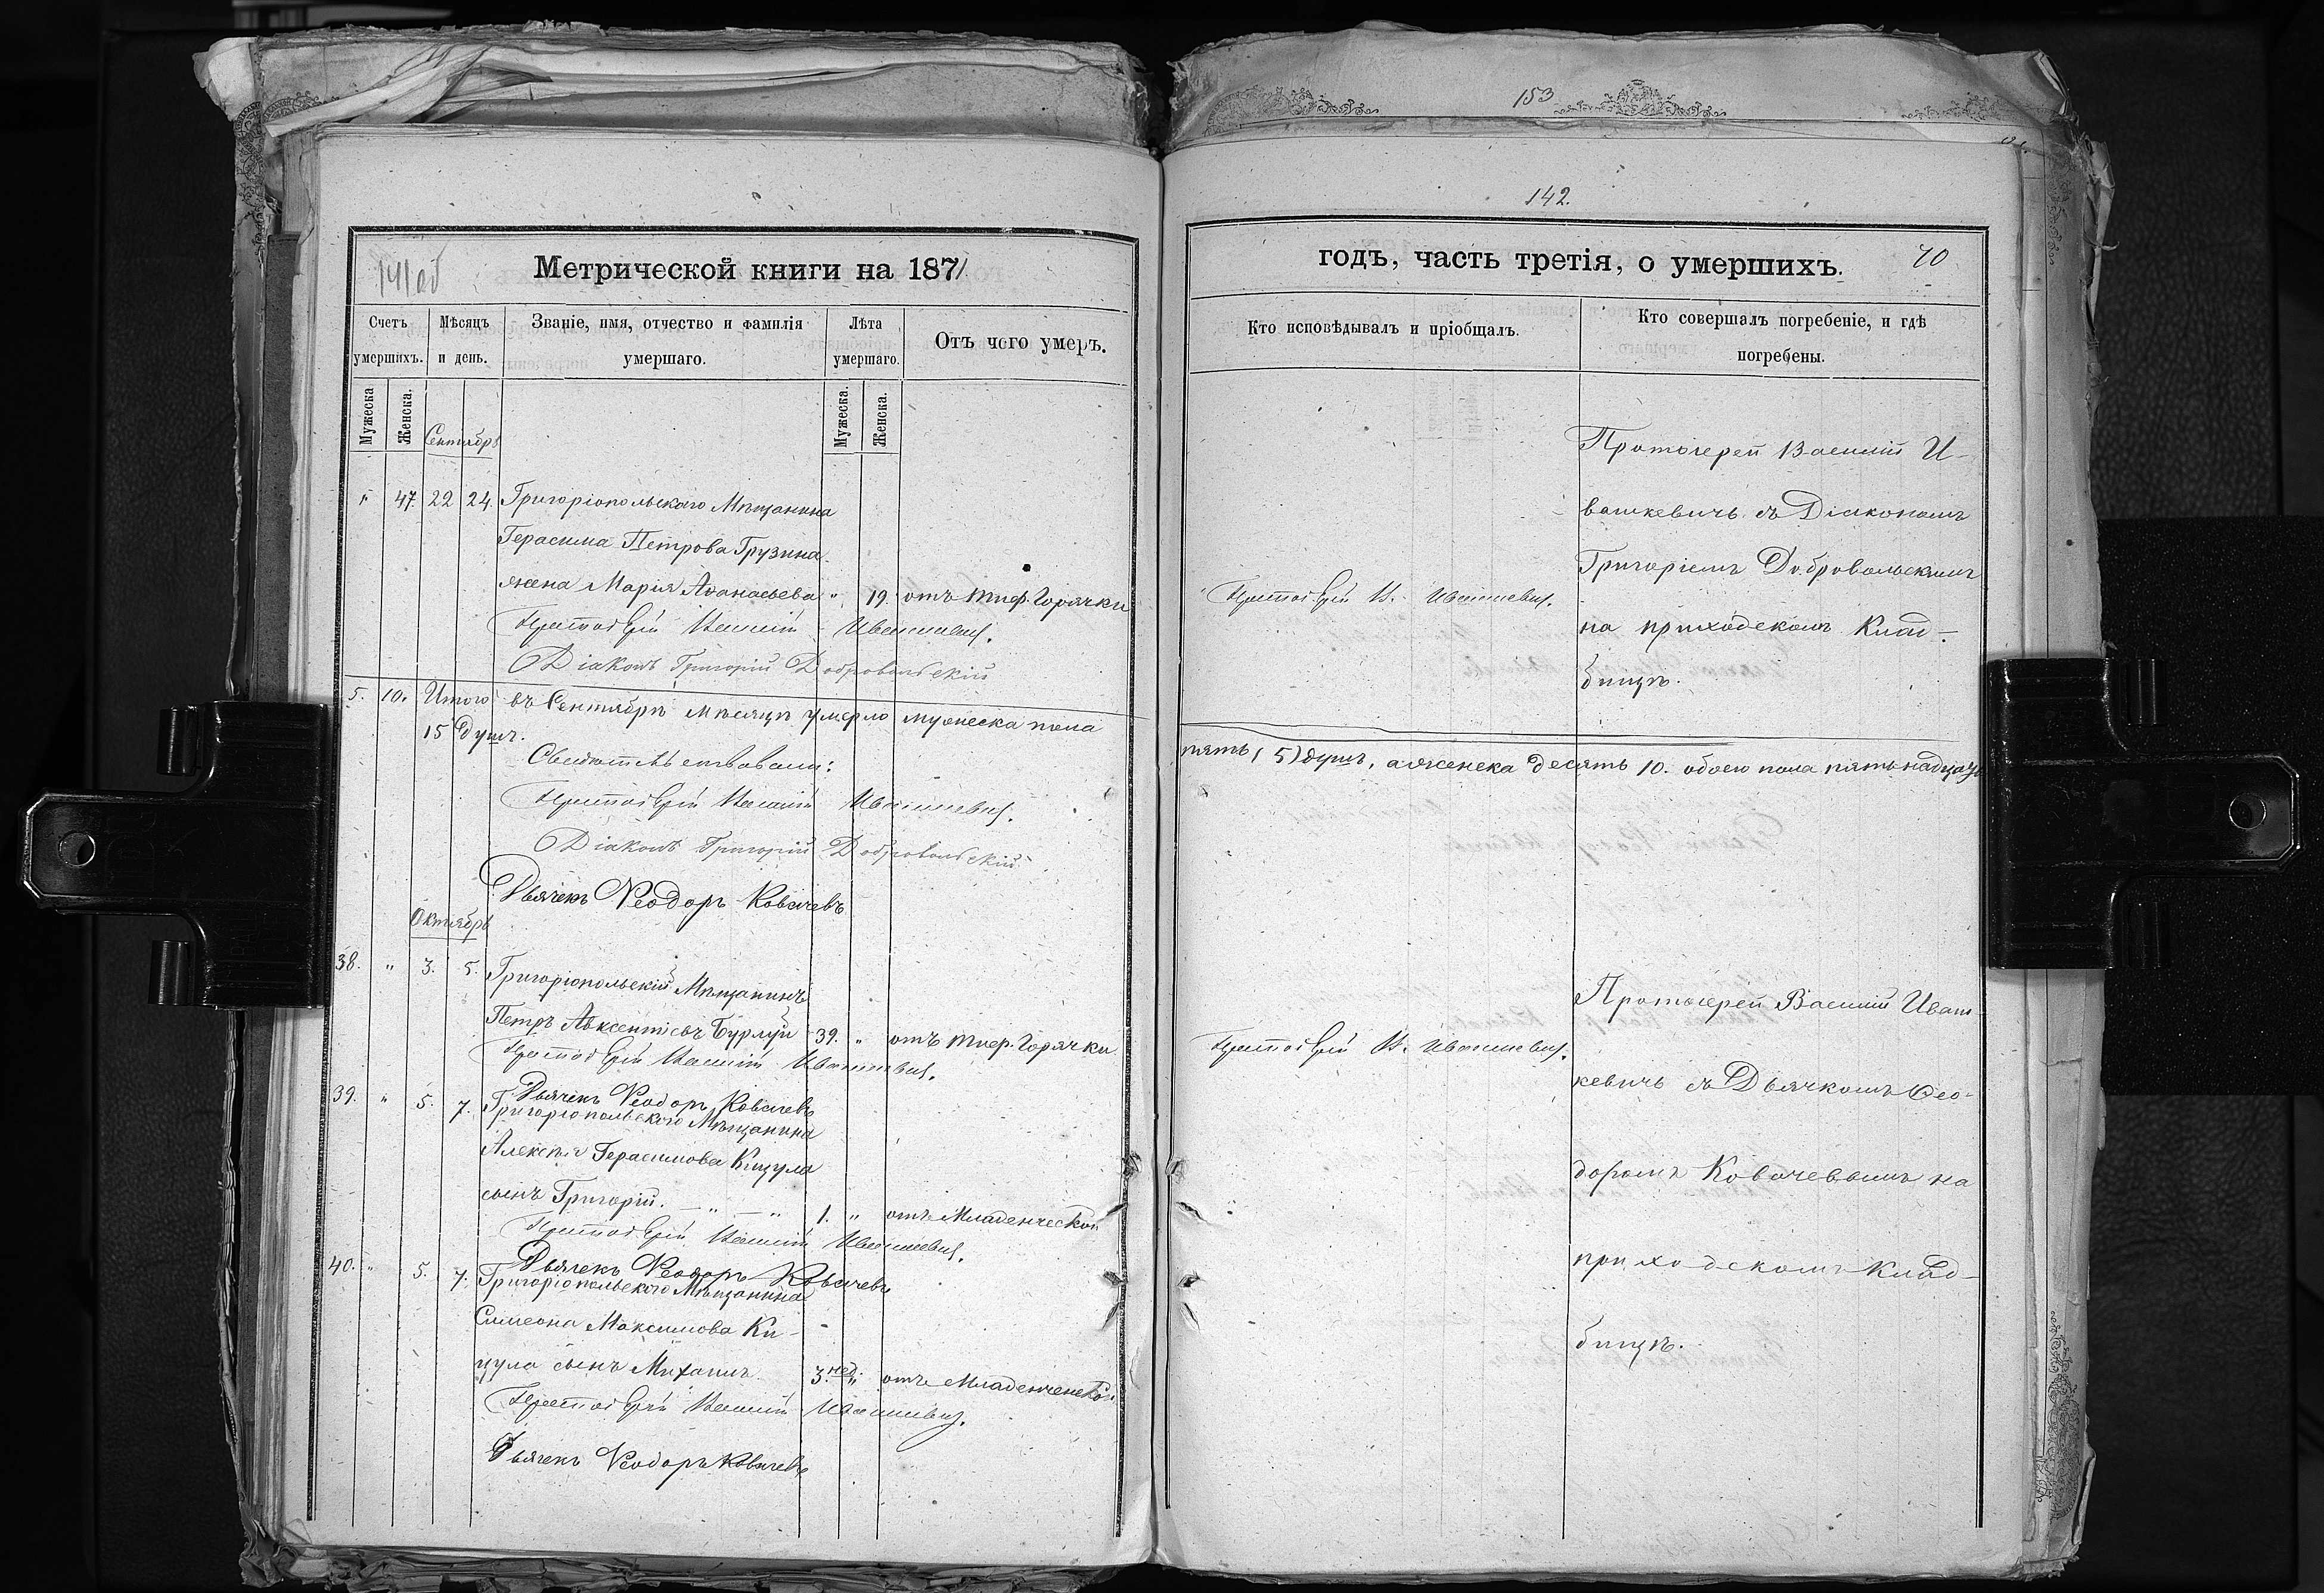 153
142.
141об
Метрической книги на 1871
Счетъ умершихъ.
Мѣсяцъ и день.
Званіе, имя, отчество и фамилія умершаго.
Лѣта умершаго.
Отъ чего умеръ.
Мужеска
Женска.
Сентябрь
Мужеска.
Женска.
" 47. 22 24. Григоріопольскаго Мѣщанина
Герасима Петрова Грузина
жена Марія Аѳанасьева " 19. отъ тиф. Горячки
Протоіерей Василій Ивашкевичъ.
Діаконъ Григорій Добровольскій
5. 10. Итого въ Сентябрѣ мѣсяцѣ умерло мужеска пола
15 душъ.
Свидѣтельствовали:
Протоіерей Василій Ивашкевичъ.
Діаконъ Григорій Добровольскій
Дьячекъ Ѳеодоръ Ковачевъ
Октябрь
38. " 3. 5. Григоріопольскій Мѣщанинъ
Петръ Авксентіевъ Бурлуй 39. " отъ тиф. Горячки
Протоіерей Василій Ивашкевичъ.
Дьячекъ Ѳеодоръ Ковачевъ
39. " 5. 7. Григоріопольскаго Мѣщанина
Алексѣя Герасимова Кицула
сынъ Григорій. — " — " 1. " отъ Младенческой
Протоіерей Василій Ивашкевичъ.
Дьячекъ Ѳеодоръ Ковачевъ
40. " 5. 7. Григоріопольскаго Мѣщанина
Симеона Максимова Ки-
цула сынъ Михаилъ. 3. нед. " отъ Младенческой
Протоіерей Василій Ивашкевичъ.
Дьячекъ Ѳеодоръ Ковачевъ
годъ, часть третія, о умершихъ.
70
Кто исповѣдывалъ и пріобщалъ.
Кто совершалъ погребеніе, и гдѣ погребены.
Протоіерей Василій И-
вашкевичъ съ Діакономъ
Григоріемъ Добровольскимъ
Протоіерей В. Ивашкевичъ.
на приходскомъ Клад-
бищѣ.
пять (5) душъ, а женска десять 10. обоего пола пятьнадцать
Протоіерей Василій Иваш-
Протоіерей В. Ивашкевичъ.
кевичъ съ Дьячкомъ Ѳео-
доромъ Ковачевымъ на
приходскомъ Клад-
бищѣ.